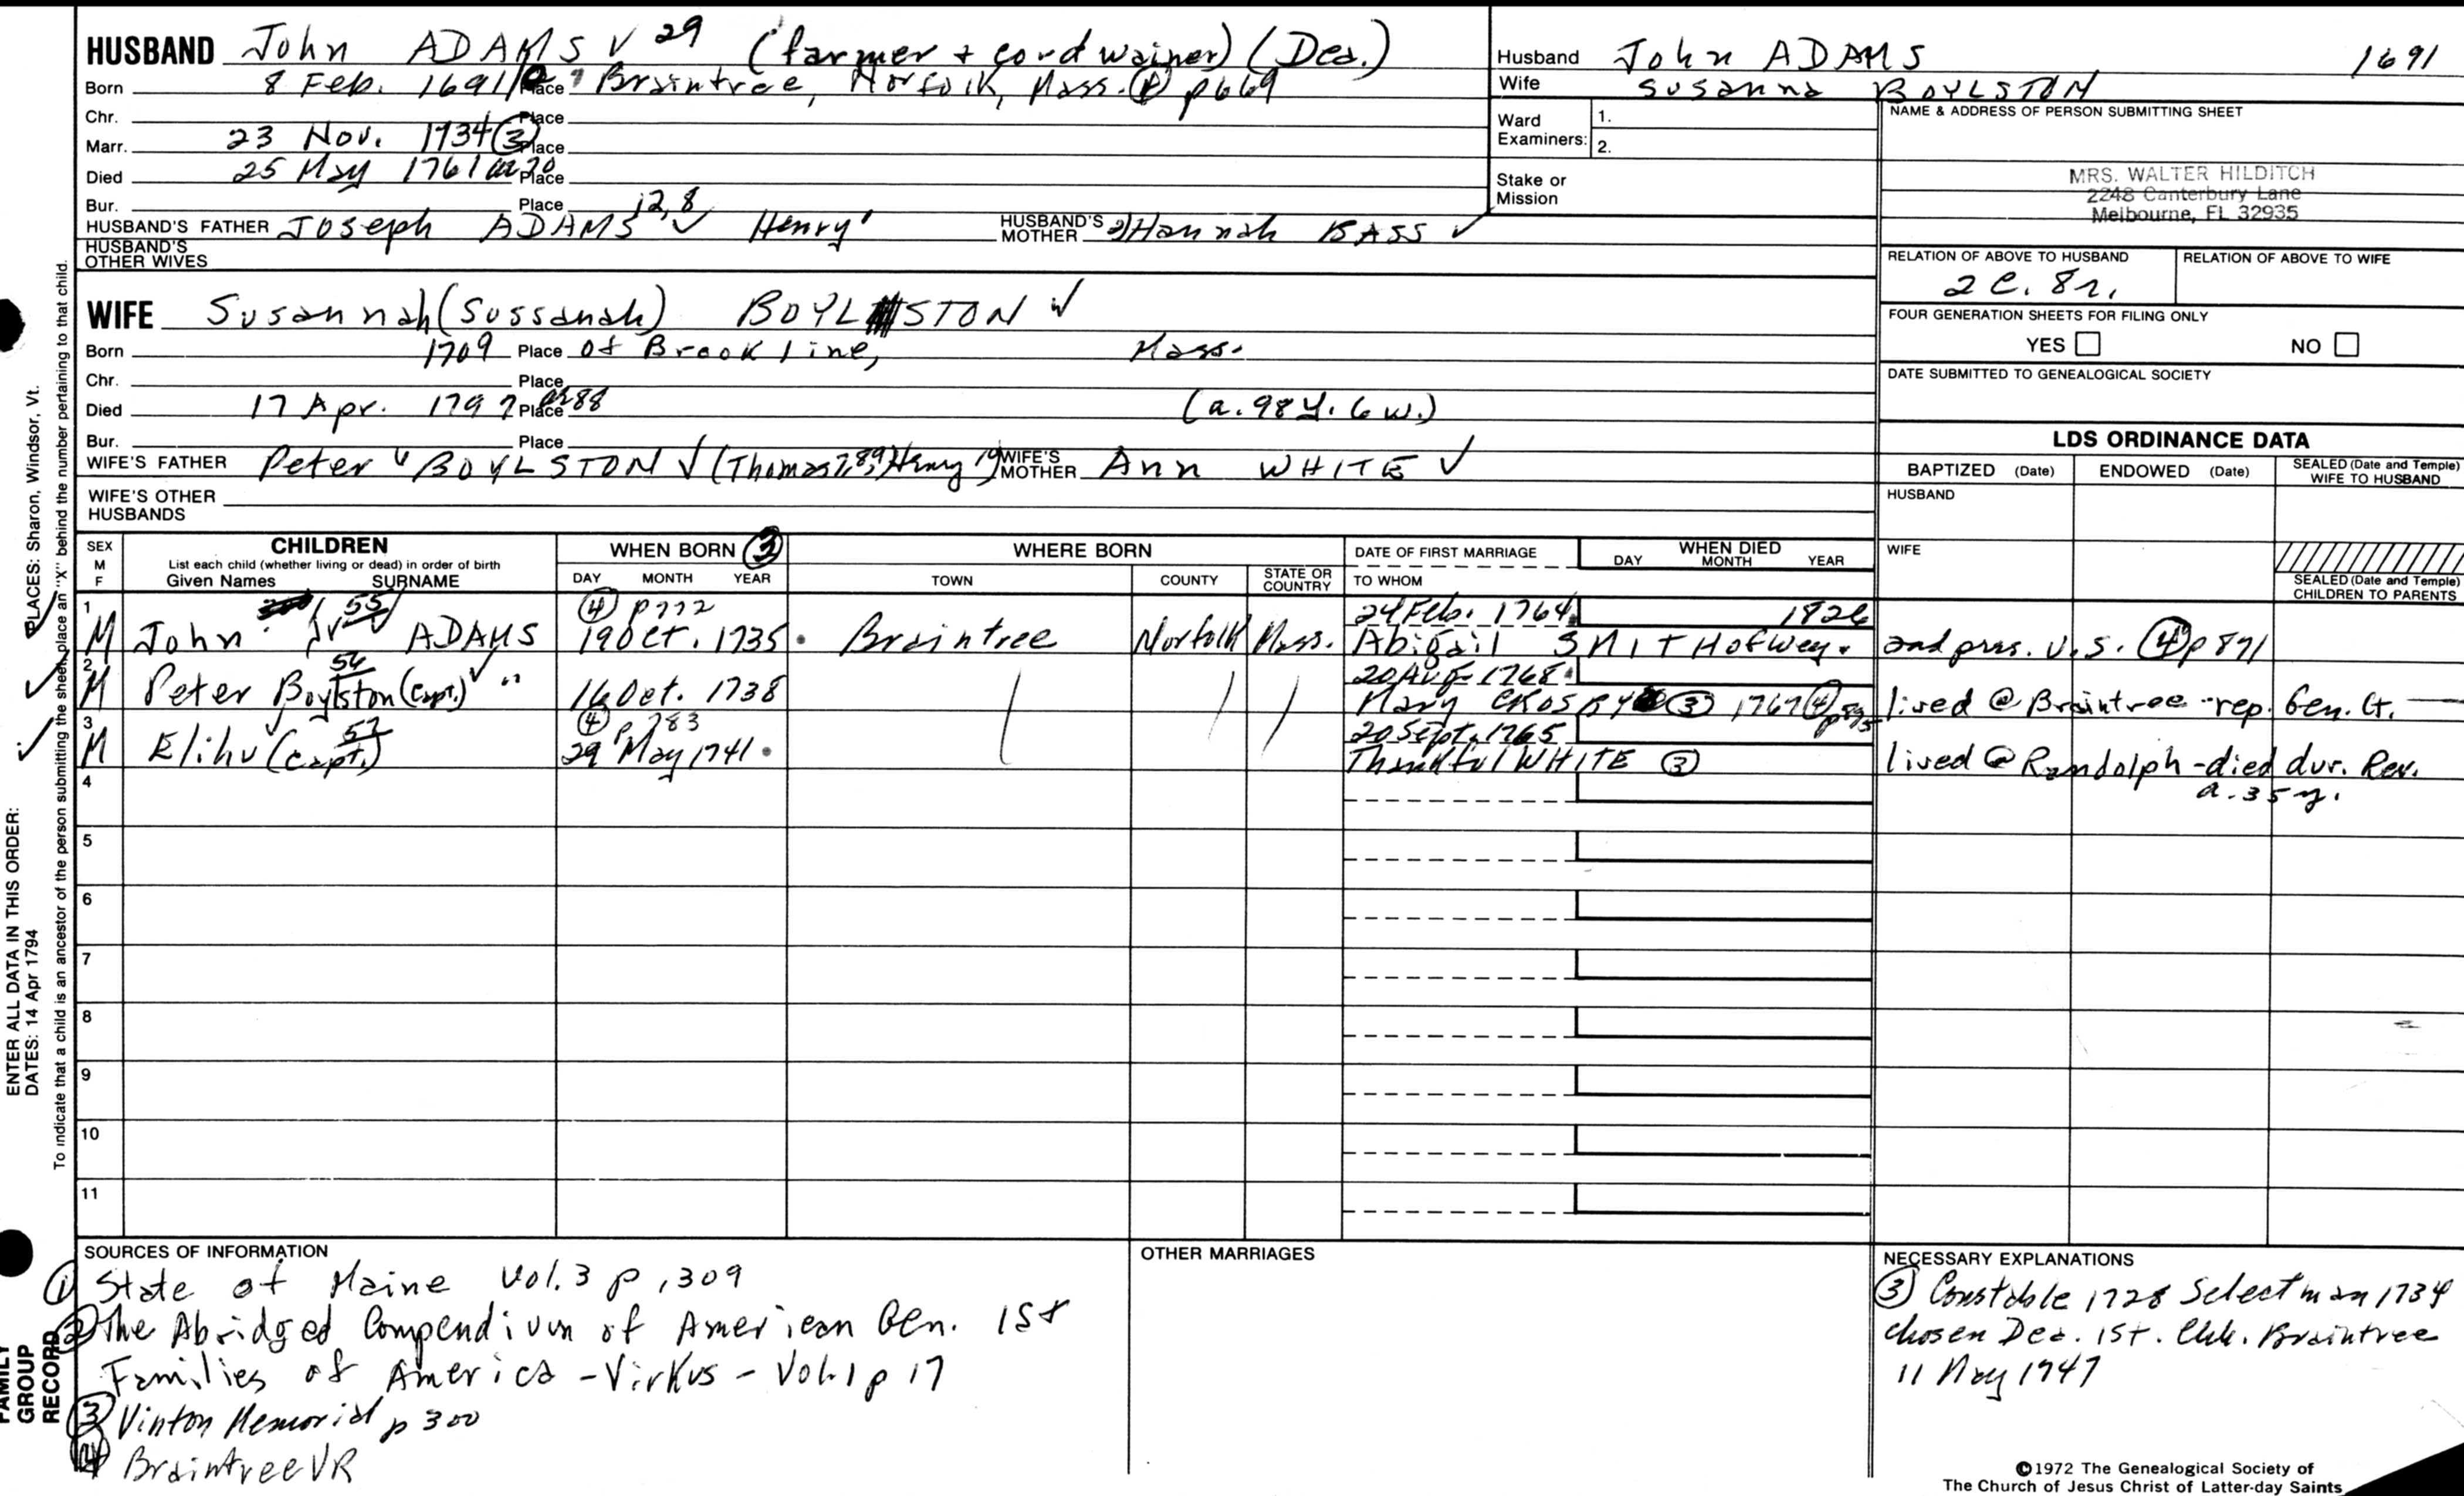 HUSBAND John ADAMS √ 29 (farmer + cordwainer) (Dea.)
Born 8 Feb. 1691/2 Place Braintree, Norfolk, Mass. ④ p669
Chr. Place
Marr. 23 Nov. 1734 ③ Place
Died 25 May 1761 Place
Bur. Place
HUSBAND'S FATHER Joseph ADAMS 12,8 √ Henry' HUSBAND'S MOTHER 2) Hannah BASS √
HUSBAND'S OTHER WIVES
WIFE Susannah (Sussanah) BOYLSTON √
Born 1709 Place of Brookline, Mass.
Chr. Place
Died 17 Apr. 1797 Place 88 (a. 98 y. 6 w.)
Bur. Place
WIFE'S FATHER Peter √ BOYLSTON √ (Thomas Henry WIFE'S MOTHER Ann WHITE √
WIFE'S OTHER HUSBANDS
Husband John ADAMS 1691
Wife Susanna BOYLSTON
Ward Examiners: 1.
2.
Stake or Mission
NAME & ADDRESS OF PERSON SUBMITTING SHEET
MRS. WALTER HILDITCH
2248 Canterbury Lane
Melbourne, FL 32935
RELATION OF ABOVE TO HUSBAND RELATION OF ABOVE TO WIFE
2 C. 8 r.
FOUR GENERATION SHEETS FOR FILING ONLY
YES NO
DATE SUBMITTED TO GENEALOGICAL SOCIETY
LDS ORDINANCE DATA
BAPTIZED (Date) ENDOWED (Date) SEALED (Date and Temple) WIFE TO HUSBAND
HUSBAND
WIFE
SEALED (Date and Temple) CHILDREN TO PARENTS
SEX M F
CHILDREN
List each child (whether living or dead) in order of birth
Given Names SURNAME
WHEN BORN ③
DAY MONTH YEAR
WHERE BORN
TOWN COUNTY STATE OR COUNTRY
DATE OF FIRST MARRIAGE
TO WHOM
WHEN DIED
DAY MONTH YEAR
1 55 ④ p772 24 Feb. 1764 1826
M John Jr √ ADAMS 19 Oct. 1735 Braintree Norfolk Mass. Abigail SMITH of Wey. 2nd pres. U.S. ④ p871
2 56 20 Aug 1768
M Peter Boylston (Capt.) √ " 16 Oct. 1738 Mary CROSBY ③ 1767 ④ lived @ Braintree - rep. Gen. Ct.
3 57 ④ p783 20 Sept. 1765
M Elihu (Capt.) 29 May 1741 Thankful WHITE ③ lived @ Randolph - died dur. Rev.
a. 35 y.
4
5
6
7
8
9
10
11
SOURCES OF INFORMATION
① State of Maine Vol. 3 p. 309
② The Abridged Compendium of American Gen. 1st
Families of America - Virkus - Vol. 1 p 17
③ Vinton Memorial p 300
④ Braintree VR
OTHER MARRIAGES
NECESSARY EXPLANATIONS
③ Constable 1728 Selectman 1734
chosen Dea. 1st. Chh. Braintree
11 May 1747
©1972 The Genealogical Society of
The Church of Jesus Christ of Latter-day Saints
ENTER ALL DATA IN THIS ORDER:
DATES: 14 Apr 1794
PLACES: Sharon, Windsor, Vt.
To indicate that a child is an ancestor of the person submitting the sheet, place an "X" behind the number pertaining to that child.
FAMILY
GROUP
RECORD